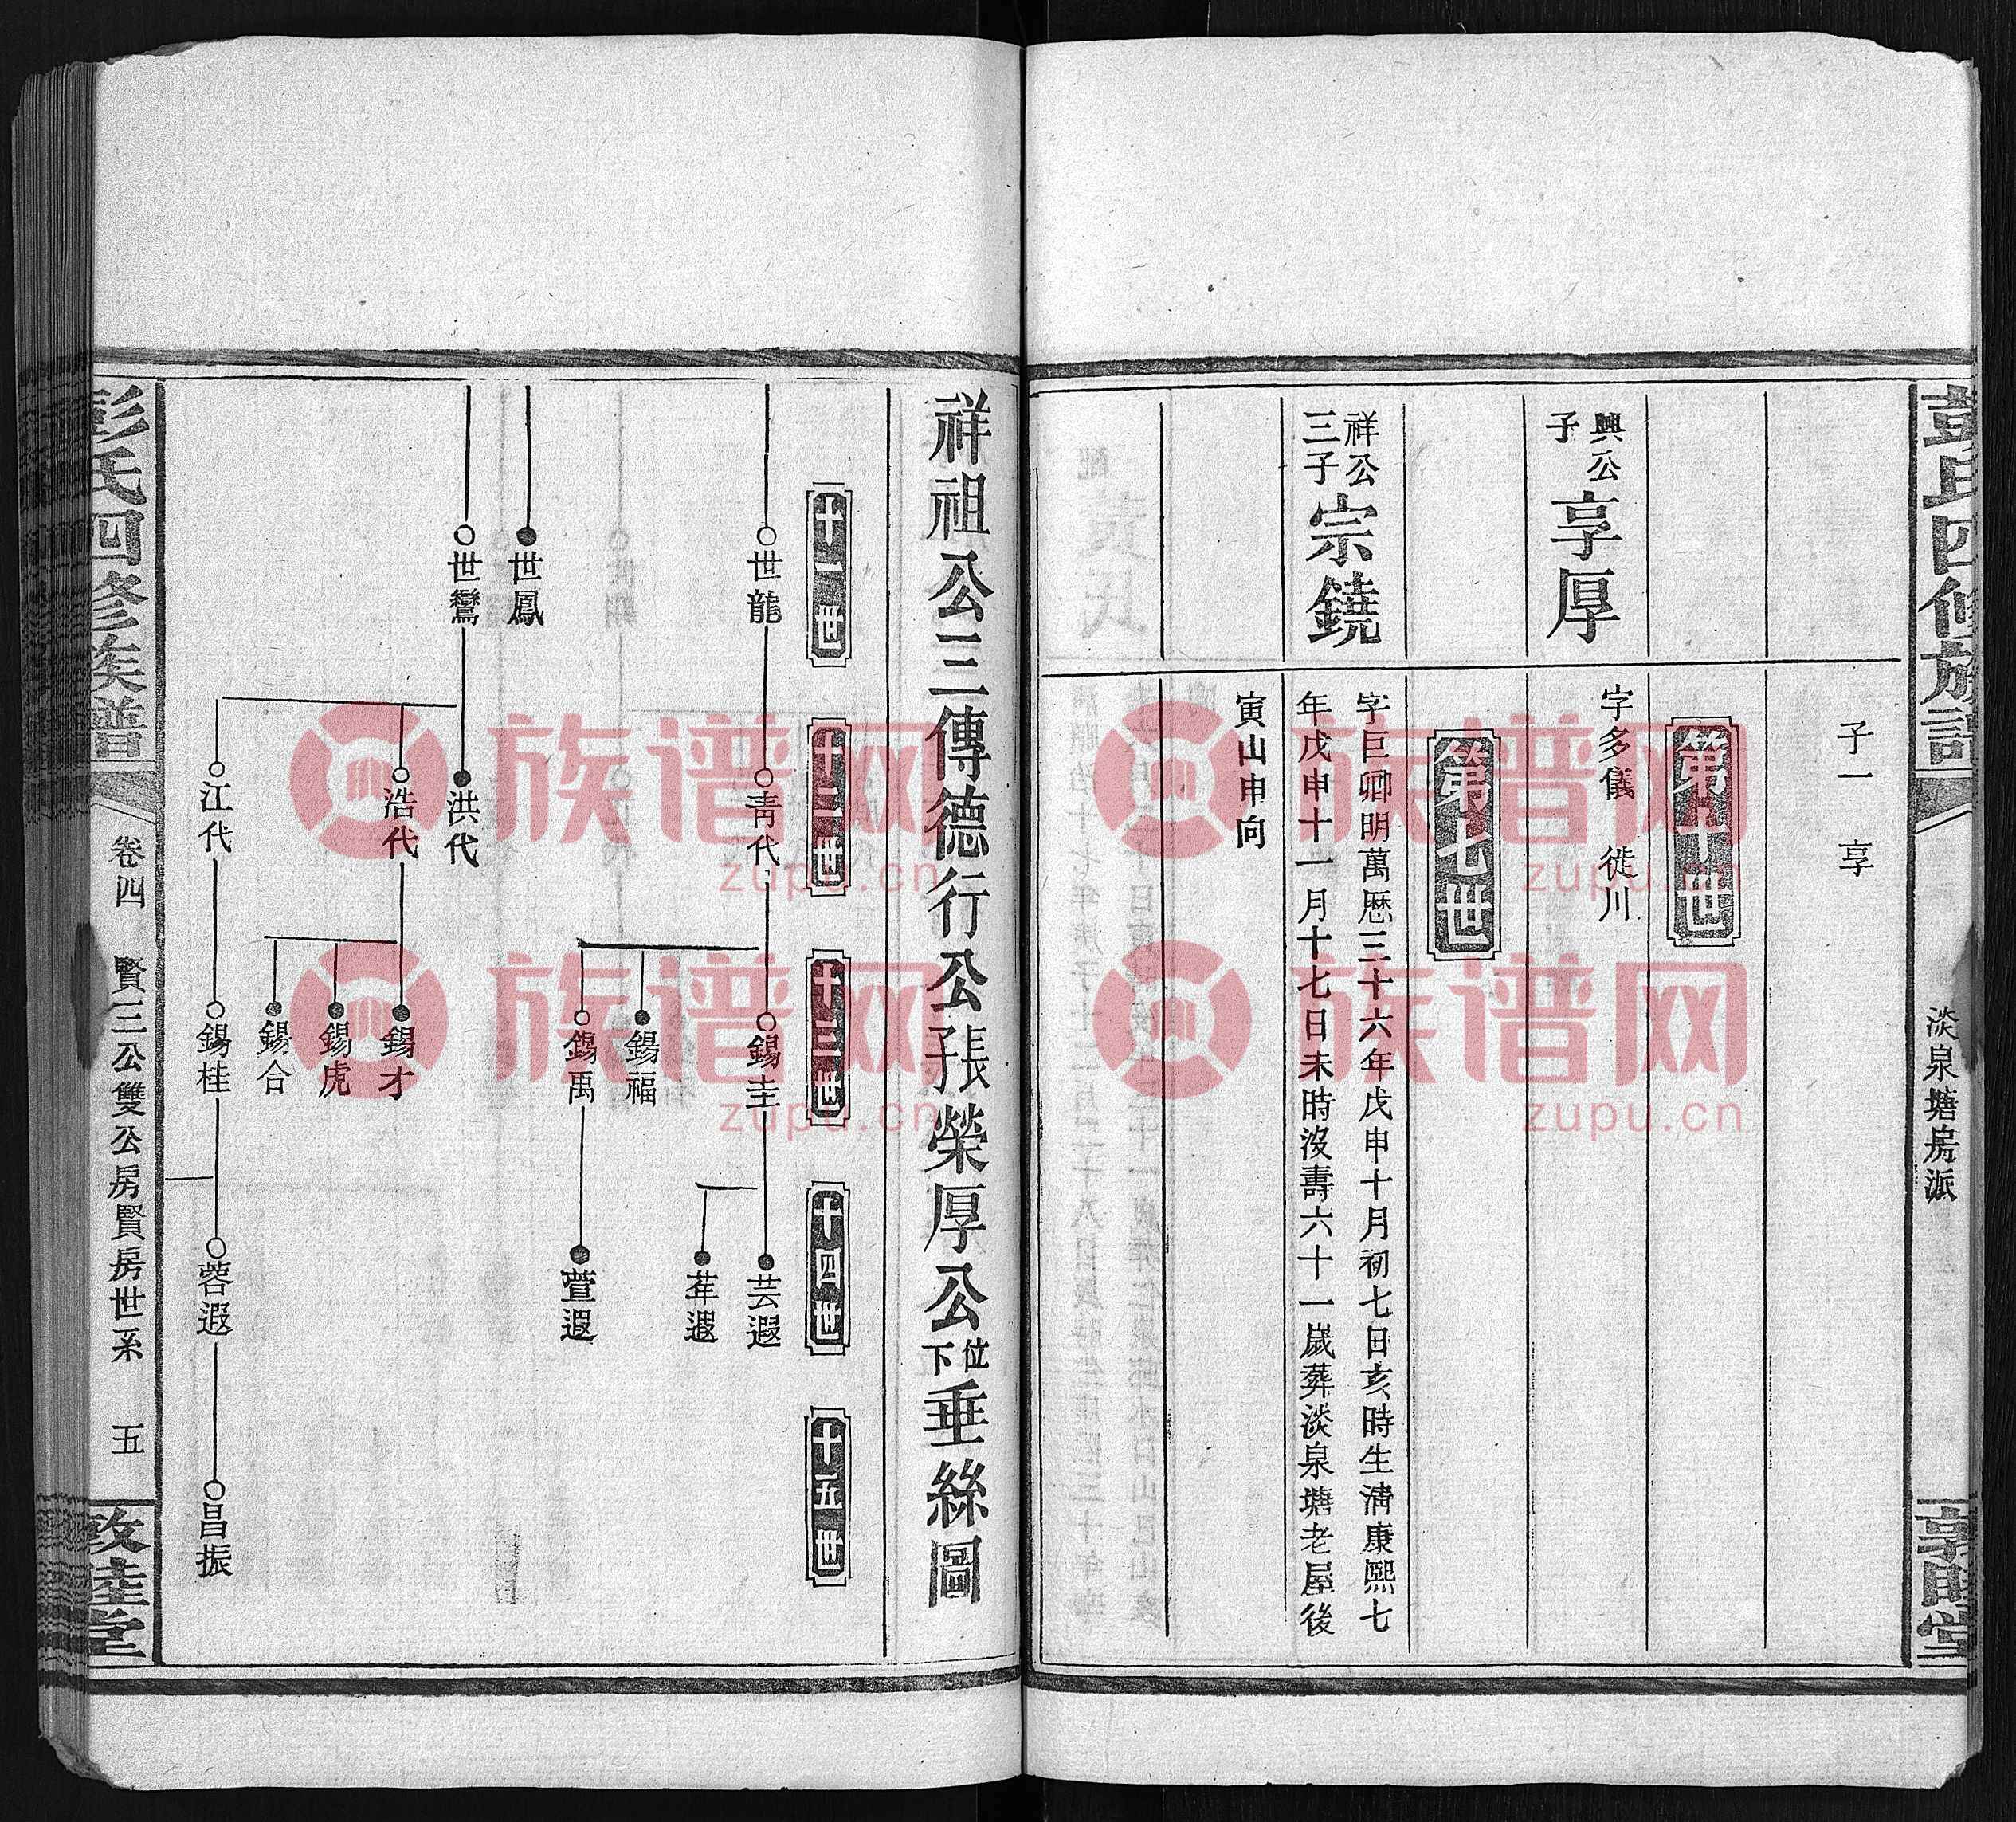 彭氏四修族譜
淡泉塘房派
敦睦堂
子一 享
第十世
興公
子
享厚
字多儀 徙川
第七世
祥公
三子
宗鐃
字巨卿明萬厯三十六年戊申十月初七日亥時生清康熙七
年戊申十一月十七日未時沒壽六十一歲葬淡泉塘老屋後
寅山申向
祥祖公三傳德行公張榮厚公位下垂絲圖
十一世
十二世
十三世
十四世
十五世
世龍
青代
錫圭
芸遐
荏遐
錫福
錫禹
萱遐
世鳳
世鸞
洪代
浩代
錫才
錫虎
錫合
江代
錫桂
蓉遐
昌振
彭氏四修族譜
卷四
賢三公雙公房賢房世系
五
敦睦堂
族谱网
zupu.cn
族谱网
zupu.cn
族谱网
zupu.cn
族谱网
zupu.cn